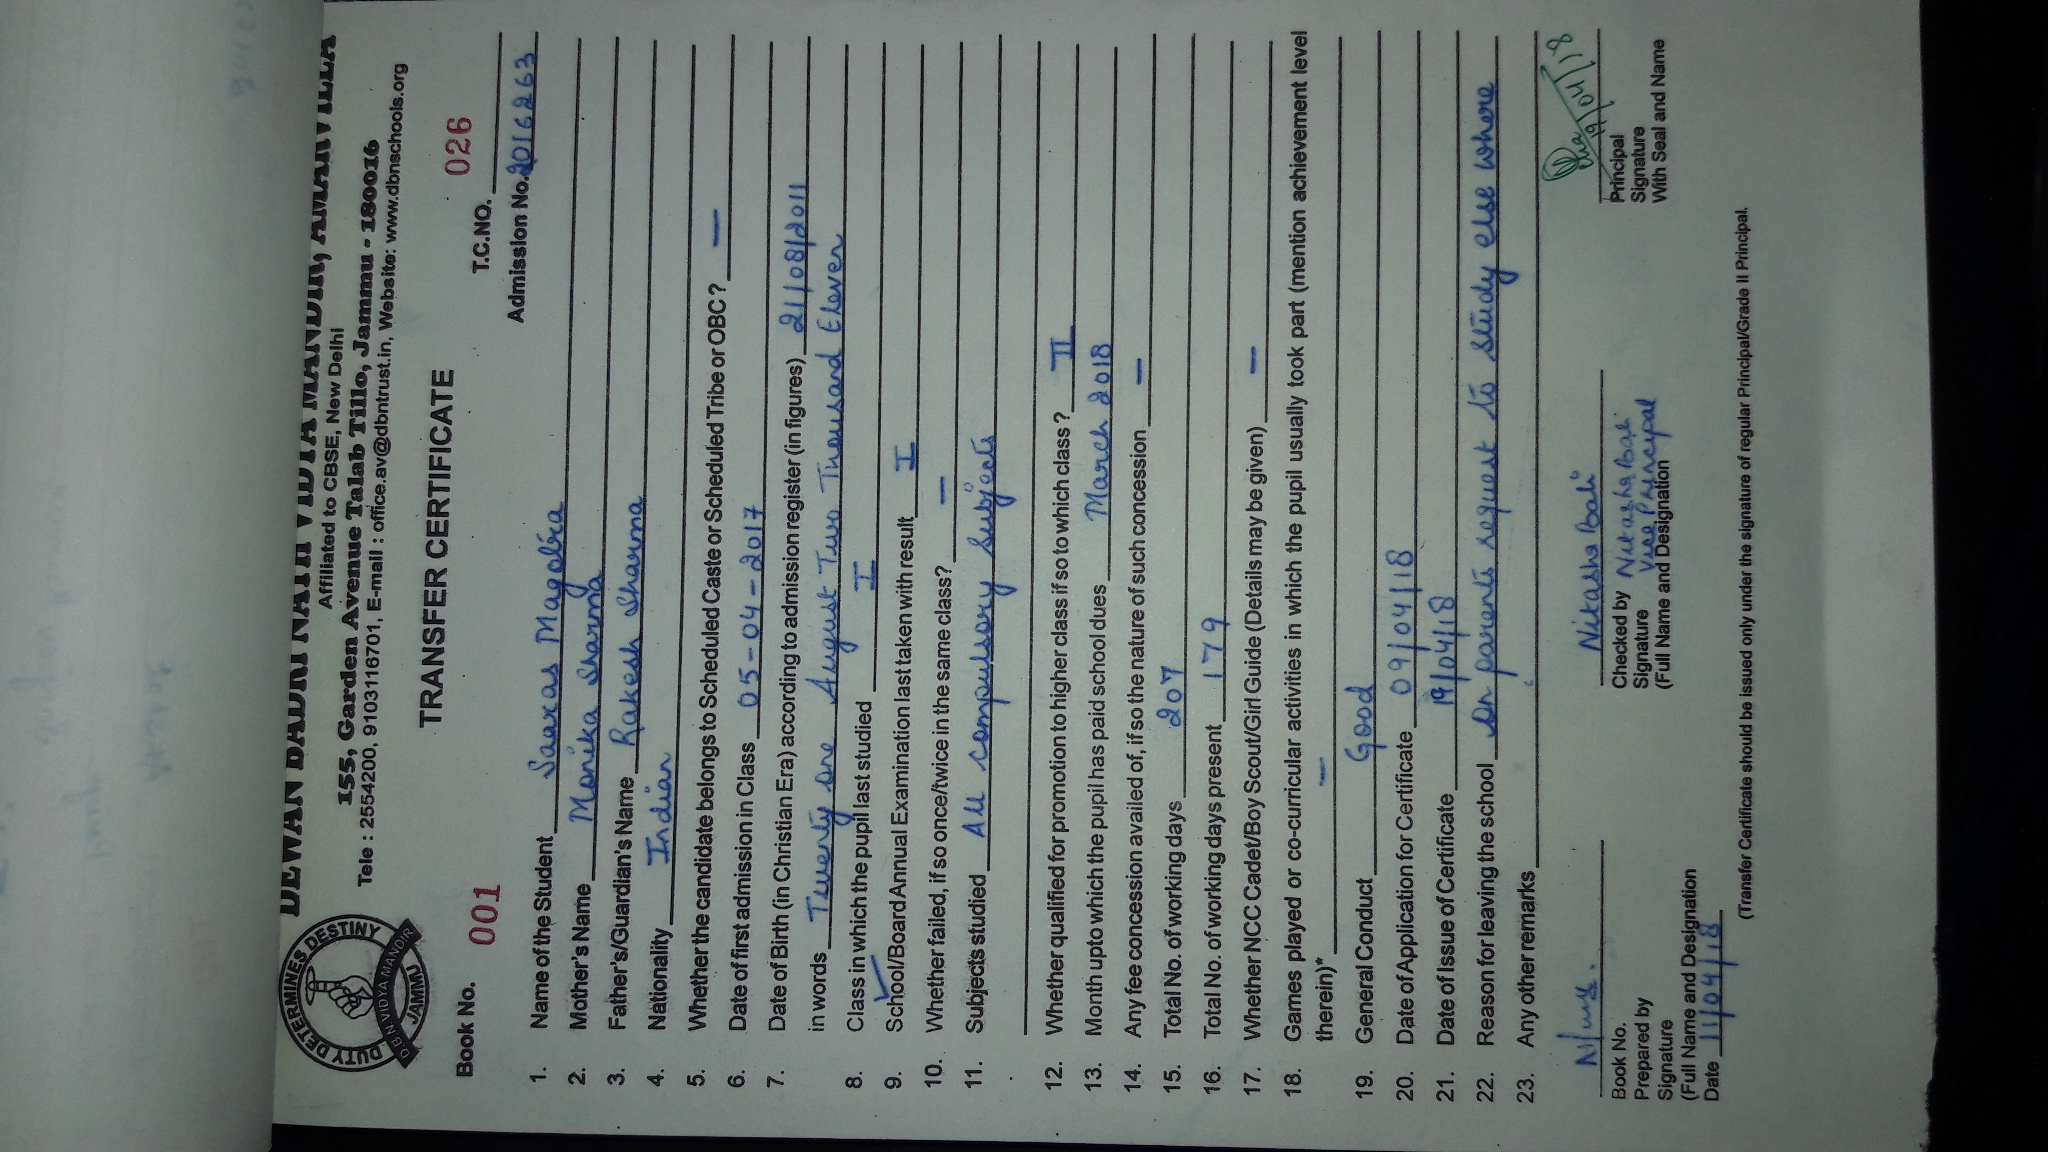 DEWAN BADRI NATH VIDYA MANDIR, AMANVILLA
Affiliated to CBSE, New Delhi
155, Garden Avenue Talab Tillo, Jammu - 180016
Tele : 2554200, 9103116701, E-mail : office.av@dbntrust.in, Website: www.dbnschools.org
DUTY DETERMINES DESTINY
D.B.N VIDYA MANDIR
JAMMU
TRANSFER CERTIFICATE
Book No. 001 T.C.NO. 026
Admission No. 2016263
1. Name of the Student Saaras Magotra
2. Mother's Name Monika Sharma
3. Father's/Guardian's Name Rakesh Sharma
4. Nationality Indian
5. Whether the candidate belongs to Scheduled Caste or Scheduled Tribe or OBC ? —
6. Date of first admission in Class 05-04-2017
7. Date of Birth (in Christian Era) according to admission register (in figures) 21/08/2011
in words Twenty one August Two Thousand Eleven
8. Class in which the pupil last studied I
9. School/Board Annual Examination last taken with result I
10. Whether failed, if so once/twice in the same class? —
11. Subjects studied All compulsory Subjects
12. Whether qualified for promotion to higher class if so to which class ? II
13. Month upto which the pupil has paid school dues March 2018
14. Any fee concession availed of, if so the nature of such concession —
15. Total No. of working days 207
16. Total No. of working days present 179
17. Whether NCC Cadet/Boy Scout/Girl Guide (Details may be given) —
18. Games played or co-curricular activities in which the pupil usually took part (mention achievement level
therein)* —
19. General Conduct Good
20. Date of Application for Certificate 09/04/18
21. Date of Issue of Certificate 19/04/18
22. Reason for leaving the school On parents request to study else where
23. Any other remarks
Nikasha Bali 19/04/18
Book No. Checked by Nikasha Bali Principal
Prepared by Signature Vice Principal Signature
Signature (Full Name and Designation) With Seal and Name
(Full Name and Designation
Date 11/04/18
(Transfer Certificate should be issued only under the signature of regular Principal/Grade II Principal.